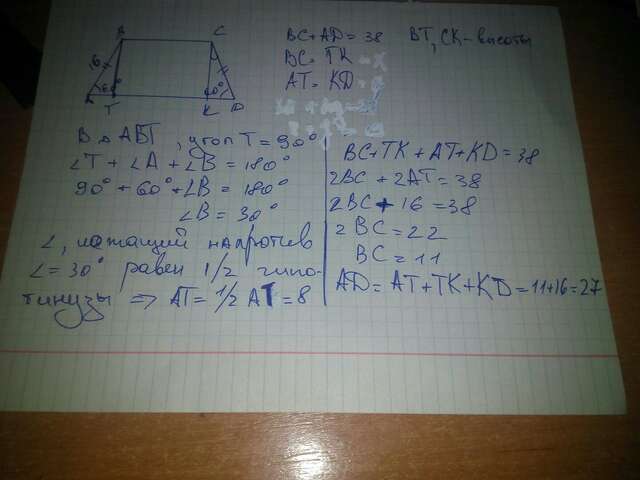 B C
6
60° 60°
A T K D
BC+AD=38
BC=TK
AT=KD
BT, CK-высоты
В △ ABT, угол T=90°
∠T+∠A+∠B=180°
90°+60°+∠B=180°
∠B=30°
∠, лежащий напротив
∠=30° равен 1/2 гипо-
тинузы => AT=1/2 AT=8
BC+TK+AT+KD=38
2BC+2AT=38
2BC+16=38
2BC=22
BC=11
AD=AT+TK+KD=11+16=27